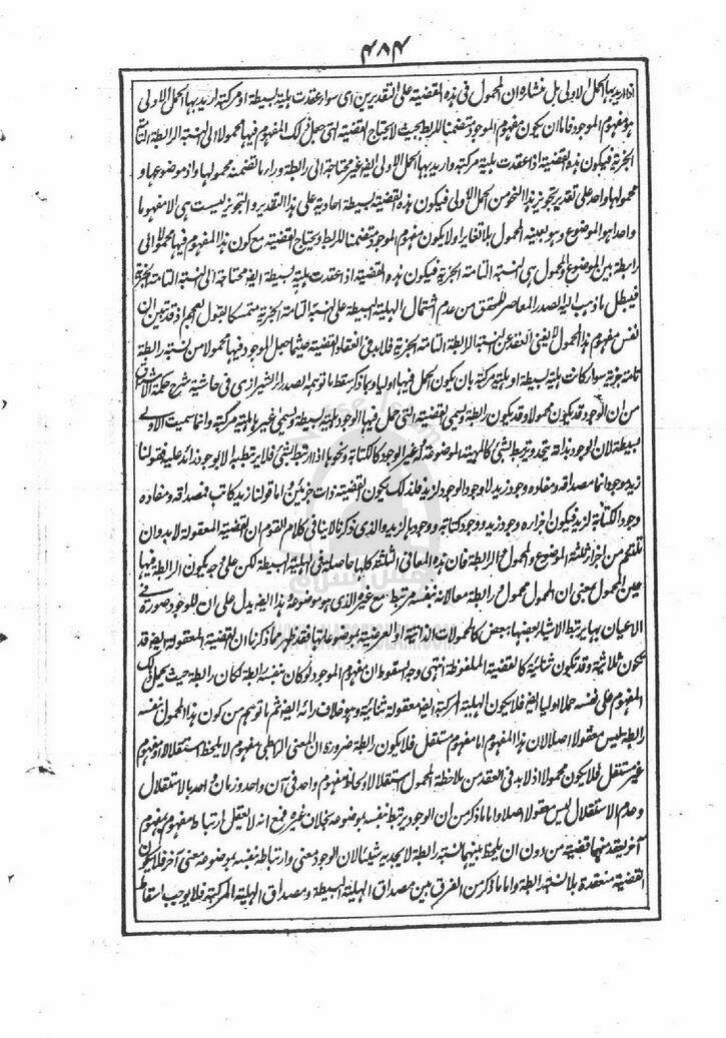 ۴۸۴
اذا اريد بها الحمل الاولى بل منشاؤه ان المحمول فى هذه القضية على التقديرين اى سواء عقدت هلية بسيطة او مركبة اريد بها الحمل الاولى
هو مفهوم الموجود فاما ان يكون مفهوم الموجود متضمنا للربط بحيث لا يحتاج القضية التى جعل ذلك المفهوم فيها محمولا الى النسبة الرابطة التامة
الخبرية فيكون هذه القضية اذا عقدت هلية مركبة واريد بها الحمل الاولى ايضا غير محتاجة الى رابطة وراء ما تضمنه محمولها واذ موضوعها و
محمولها واحد على تقدير تجويز هذا النحو من الحمل الاولى فيكون هذه القضية بسيطة احادية على هذا التقدير والتجويز ليست هى الا مفهوما
واحدا هو الموضوع وهو بعينه المحمول بلا تغاير اولا يكون مفهوم الموجود متضمنا للربط ويحتاج القضية مع كون هذا المفهوم فيها محمولا الى
رابطة بين الموضوع والمحمول هى النسبة التامة الخبرية فيكون هذه القضية اذا عقدت هلية بسيطة ايضا محتاجة الى النسبة التامة الخبرية
فبطل ما ذهب اليه الصدر المعاصر للمحقق من عدم اشتمال الهلية البسيطة على النسبة التامة الخبرية متمسكا بقول العجم اذ قد تبين ان
نفس مفهوم هذا المحمول لا يغنى العقد عن النسبة الرابطة التامة الخبرية فلا بد فى انعقاد القضية حيثما جعل الموجود فيها محمولا من نسبة رابطة
تامة خبرية سواء كانت هلية بسيطة او هلية مركبة بان يكون الحمل فيها اوليا وبما ذكر سقط ما توهمه الصدر الشيرازى فى حاشية شرح حكمة الاشراق
من ان الوجود قد يكون محمولا وقد يكون رابطة ويسمى القضية التى حمل فيها الوجود هلية بسيطة ويسمى غيرها هلية مركبة وانما سميت الاولى
بسيطة لان الوجود بذاته يتحد ويرتبط الشئ كالمهية الموضوعة له غير الوجود كالكتابة ونحوها اذا ارتبط الشئ فلا يرتبط به الا بوجود زائد عليه فقولنا
زيد موجود انما مصداقه ومفاده وجود زيد لا وجود الوجود لزيد فلذلك يكون القضية ذات جزئين واما قولنا زيد كاتب فمصداقه ومفاده
وجود الكتابة لزيد فيكون اجزاؤه وجود زيد ووجود كتابة ووجودها لزيد والذى ذكرنا لا ينافى كلام القوم ان القضية المعقولة لا بد وان
تلتئم من اجزاء ثلثة الموضوع والمحمول والرابطة فان هذه المعانى الثلثة كلها حاصلة فى الهلية البسيطة لكن على وجه يكون الرابطة فيها
عين المحمول بمعنى ان المحمول محمول و رابطة معا لانه بنفسه مرتبط مع غيره الذى هو موضوعه وهذا ايضا يدل على ان للوجود صورة فى
الاعيان بها يرتبط الاشياء بعضها ببعض كالمحمولات الذاتية او العرضية بموضوعاتها فقد ظهر مما ذكرنا ان القضية المعقولة ايضا قد
تكون ثلاثية وقد تكون ثنائية كالقضية الملفوظة انتهى وجه السقوط ان مفهوم الموجود لو كان بنفسه رابطة لكان رابطة حيث يحمل ذلك
المفهوم على نفسه حملا اوليا ايضا فلا يكون الهلية المركبة ايضا معقولة ثنائية وهو خلاف رائه ايضا ثم ما توهم من كون هذا المحمول بنفسه
رابطة ليس معقولا اصلا لان هذا المفهوم اما مفهوم مستقل فلا يكون رابطة ضرورة ان المعنى الرابطى مفهوم لا يلحظ استقلالا او مفهوم
غير مستقل فلا يكون محمولا اذ لا بد فى العقد من ملاحظة المحمول استقلالا ولحاظ مفهوم واحد فى آن واحد وزمان واحد بالاستقلال
وعدم الاستقلال ليس معقولا اصلا واما ما ذكر من ان الوجود يرتبط بنفسه بموضوعه بخلاف غيره فمع انه لا يعقل ارتباط مفهوم بمفهوم
آخر يعقد منهما قضية من دون ان يلحظ بينهما نسبة رابطة لا يجديه شيئا لان الوجود معنى وارتباطه بنفسه بموضوعه معنى آخر فلا يكون
القضية منعقدة بلا نسبة رابطة واما ما ذكر من الفرق بين مصداق الهلية البسيطة ومصداق الهلية المركبة فلا يوجب اسقاط